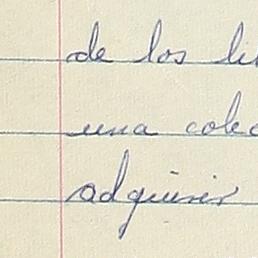 de los li
una colec
adquirir